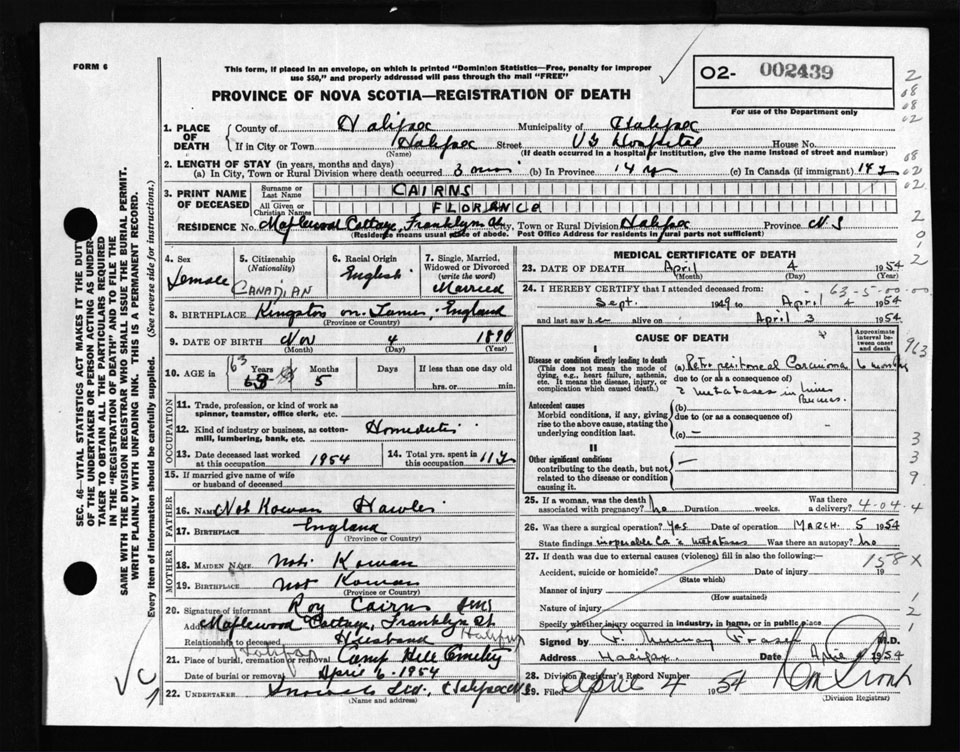 FORM 6
This form, if placed in an envelope, on which is printed "Dominion Statistics—Free, penalty for improper
use $50," and properly addressed will pass through the mail "FREE"
O2- 002439
For use of the Department only
PROVINCE OF NOVA SCOTIA—REGISTRATION OF DEATH
1. PLACE OF DEATH
County of Halifax Municipality of Halifax
If in City or Town Halifax Street VG Hospital House No.
(Name) (If death occurred in a hospital or institution, give the name instead of street and number)
2. LENGTH OF STAY (in years, months and days)
(a) In City, Town or Rural Division where death occurred 3 mos (b) In Province 14 y (c) In Canada (if immigrant) 14 y
3. PRINT NAME OF DECEASED
Surname or Last Name CAIRNS
All Given or Christian Names FLORENCE
RESIDENCE No. Maplewood Cottage, Franklyn St City, Town or Rural Division Halifax Province N S
(Residence means usual place of abode. Post Office Address for residents in rural parts not sufficient)
4. Sex Female
5. Citizenship (Nationality) CANADIAN
6. Racial Origin English
7. Single, Married, Widowed or Divorced (write the word) Married
8. BIRTHPLACE Kingston on Tames, England
(Province or Country)
9. DATE OF BIRTH Nov 4 1890
(Month) (Day) (Year)
10. AGE in 63 Years 5 Months Days If less than one day old
hrs. or min.
OCCUPATION
11. Trade, profession, or kind of work as spinner, teamster, office clerk, etc.
12. Kind of industry or business, as cotton-mill, lumbering, bank, etc. Homeduties
13. Date deceased last worked at this occupation 1954
14. Total yrs. spent in this occupation 11 y
15. If married give name of wife or husband of deceased
FATHER
16. NAME Not Kowan Hawles
17. BIRTHPLACE England
(Province or Country)
MOTHER
18. MAIDEN NAME Not Kowan
19. BIRTHPLACE not Kowan
(Province or Country)
20. Signature of informant Roy Cairns
Address Maplewood Cottage, Franklyn St. Halifax
Relationship to deceased Husband
21. Place of burial, cremation or removal Camp Hill Cemetery Halifax
Date of burial or removal April 6. 1954
22. UNDERTAKER Snow & Co Ltd., Halifax N.S
(Name and address)
MEDICAL CERTIFICATE OF DEATH
23. DATE OF DEATH April 4 1954
(Month) (Day) (Year)
24. I HEREBY CERTIFY that I attended deceased from: 63-5-00-00
Sept. 1949 to April 4 1954
and last saw her alive on April 3 1954
CAUSE OF DEATH
Approximate interval between onset and death
I
Disease or condition directly leading to death
(This does not mean the mode of dying, e.g., heart failure, asthenia, etc. It means the disease, injury, or complication which caused death.)
(a) Retroperitoneal Carcinoma 6 months
due to (or as a consequence of)
Antecedent causes
Morbid conditions, if any, giving rise to the above cause, stating the underlying condition last.
(b)
due to (or as a consequence of)
(c) —
II
Other significant conditions
contributing to the death, but not related to the disease or condition causing it.
—
25. If a woman, was the death associated with pregnancy? no Duration weeks. Was there a delivery?
4-04-4
26. Was there a surgical operation? Yes Date of operation MARCH 5 1954
State findings inoperable Ca c metastases Was there an autopsy? no
27. If death was due to external causes (violence) fill in also the following:—
158X
Accident, suicide or homicide? Date of injury 19
(State which)
Manner of injury
(How sustained)
Nature of injury
Specify whether injury occurred in industry, in home, or in public place
Signed by F. Murray Fraser M.D.
Address Halifax. Date April 1954
28. Division Registrar's Record Number
29. Filed April 4 1954
(Division Registrar)
SEC. 46—VITAL STATISTICS ACT MAKES IT THE DUTY
OF THE UNDERTAKER OR PERSON ACTING AS UNDERTAKER
TO OBTAIN ALL THE PARTICULARS REQUIRED
IN THE "REGISTRATION OF DEATH" AND TO FILE THE
SAME WITH THE DIVISION REGISTRAR WHO SHALL ISSUE THE BURIAL PERMIT.
WRITE PLAINLY WITH UNFADING INK. THIS IS A PERMANENT RECORD.
Every item of information should be carefully supplied. (See reverse side for instructions.)